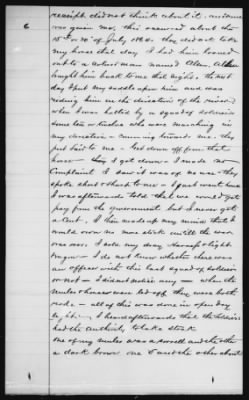 6
receipt did not think about it.
was given me, this occurred about the
15th or 20 of July 1864. They did not take
my horse that day I had him loaned
out to a colored man named Allen, Allen
brought him back to me that night, the next
day I put my saddle upon him and was
riding him in the direction of the river
when I was halted by a squad of soldiers
some ten or twelve who were marching in
my direction - coming toward me, they
just said to me - Get down off from that
horse - I got down - I made no
Complaint I saw it was of no use they
spoke short & sharp to me - I just went home
I was afterwards told that we would get
pay from the government but I never got
a Cent, I then made up my mind that I
would own no more stock until the war
was over. I sold my dray Harness & light
wagon - I do not know whether there was
an officer with this last squad of soldiers
or not - I did not notice any - when the
mules & horses were led off they were both
rode - all of this was done in open day
light - I heard afterwards that the soldiers
had the authority to take stock
one of my mules was a sorrell and the other
a dark brown one & and the other about